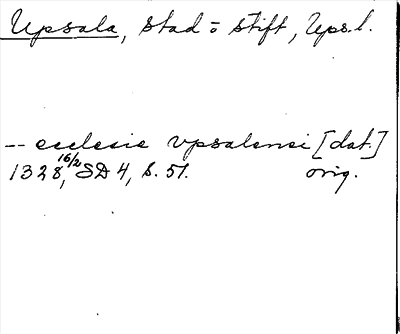 Upsala, Stad o Stift, Ups. l.
-- ecclesie vpsalensi [dat.]
1328, 16/2 SD 4, S. 51. orig.